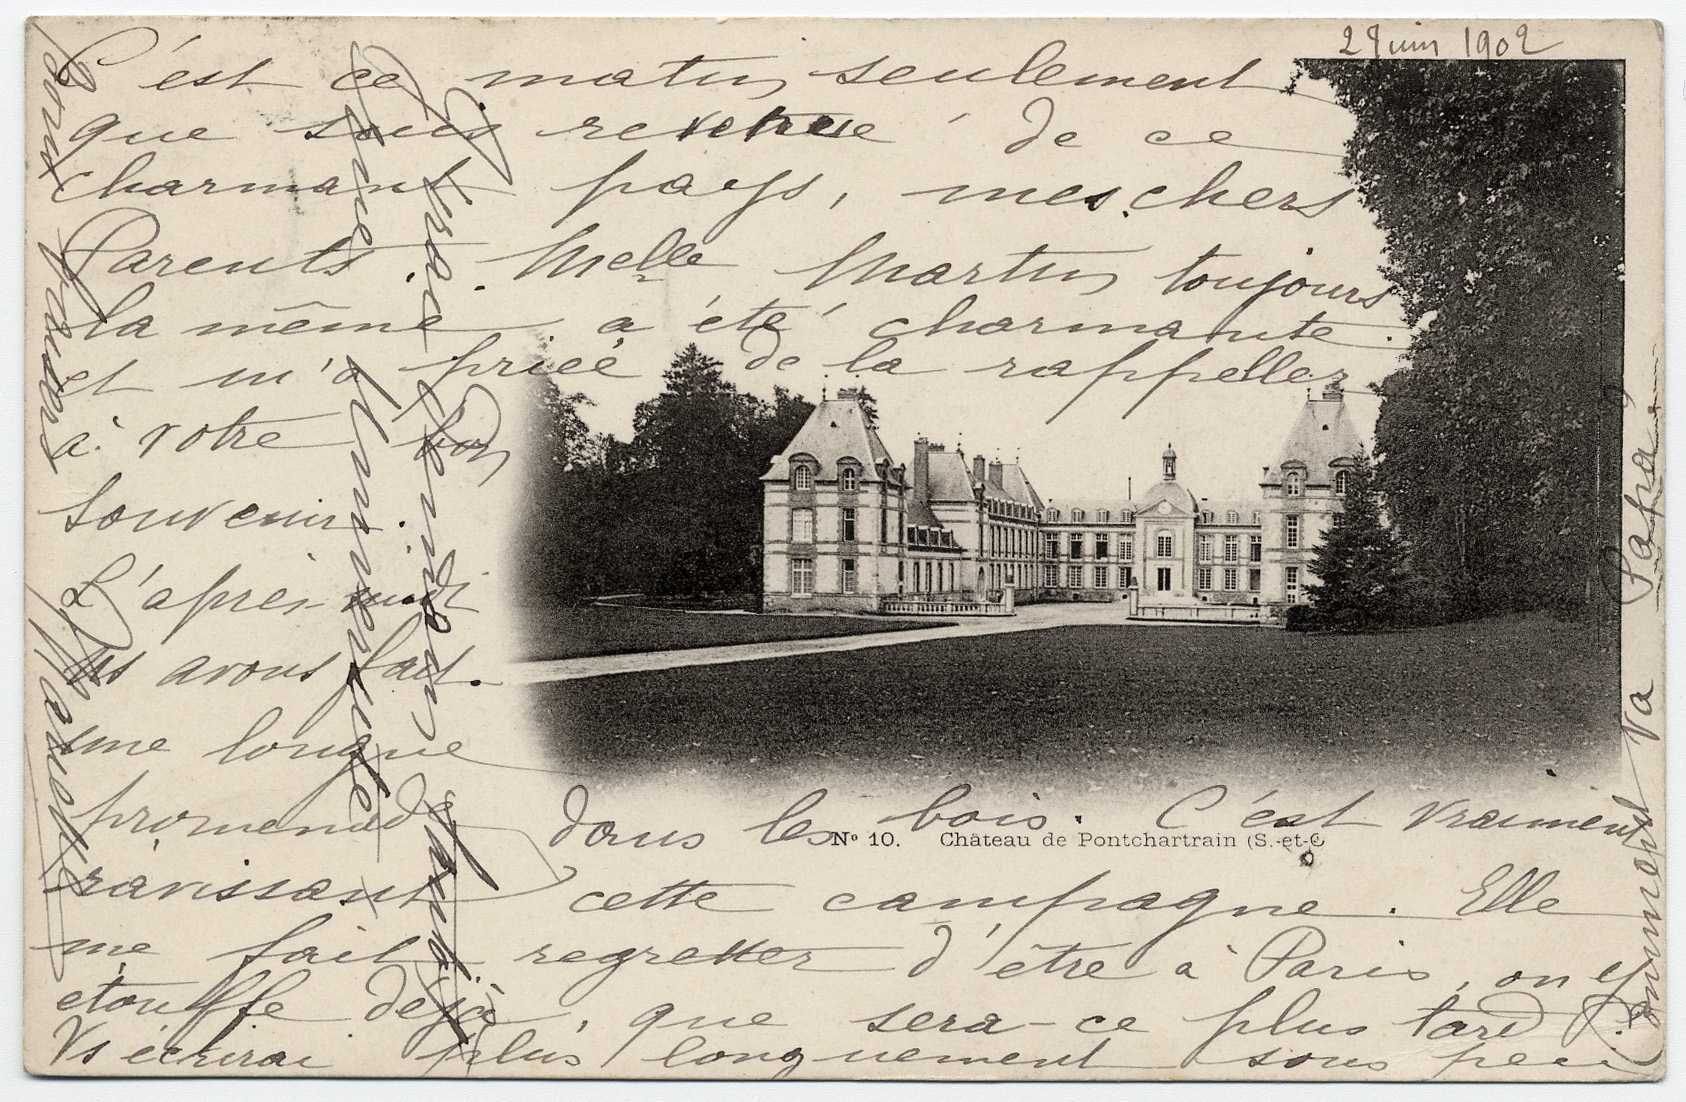 2 Juin 1902
C'est ce matin seulement
que suis revenue de ce
charmant pays, mes chers
Parents. Melle Martin toujours
la même, a été charmante
et m'a priée de la rappeller
à votre bon
souvenir.
L'après-midi
ns avons fait
une longue
promenade dans les bois. C'est vraiment
ravissant cette campagne. Elle
me fait regretter d'être à Paris, on y
étouffe déjà, que sera-ce plus tard
Vs écrirai plus longuement sous peu
Comment va Papa?
Nº 10. Château de Pontchartrain (S.-et-O